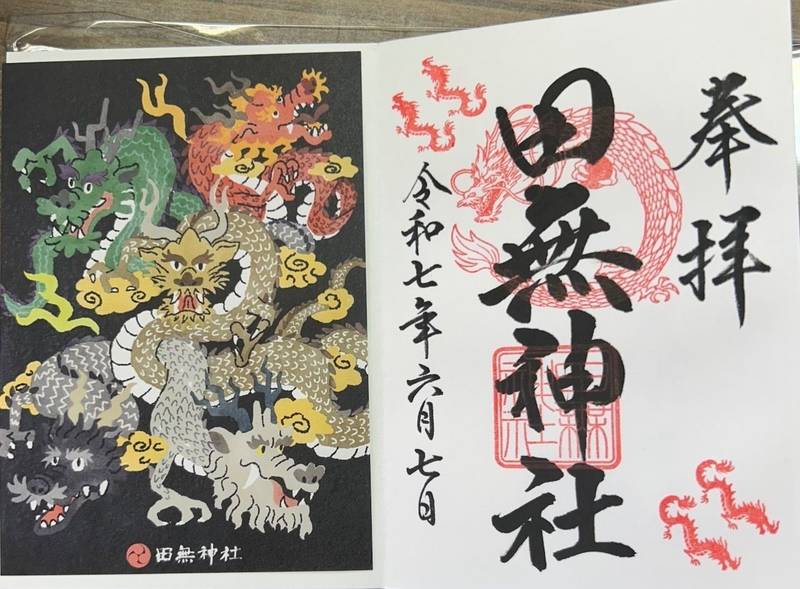 奉拝
田無神社
令和七年六月七日
田無神社